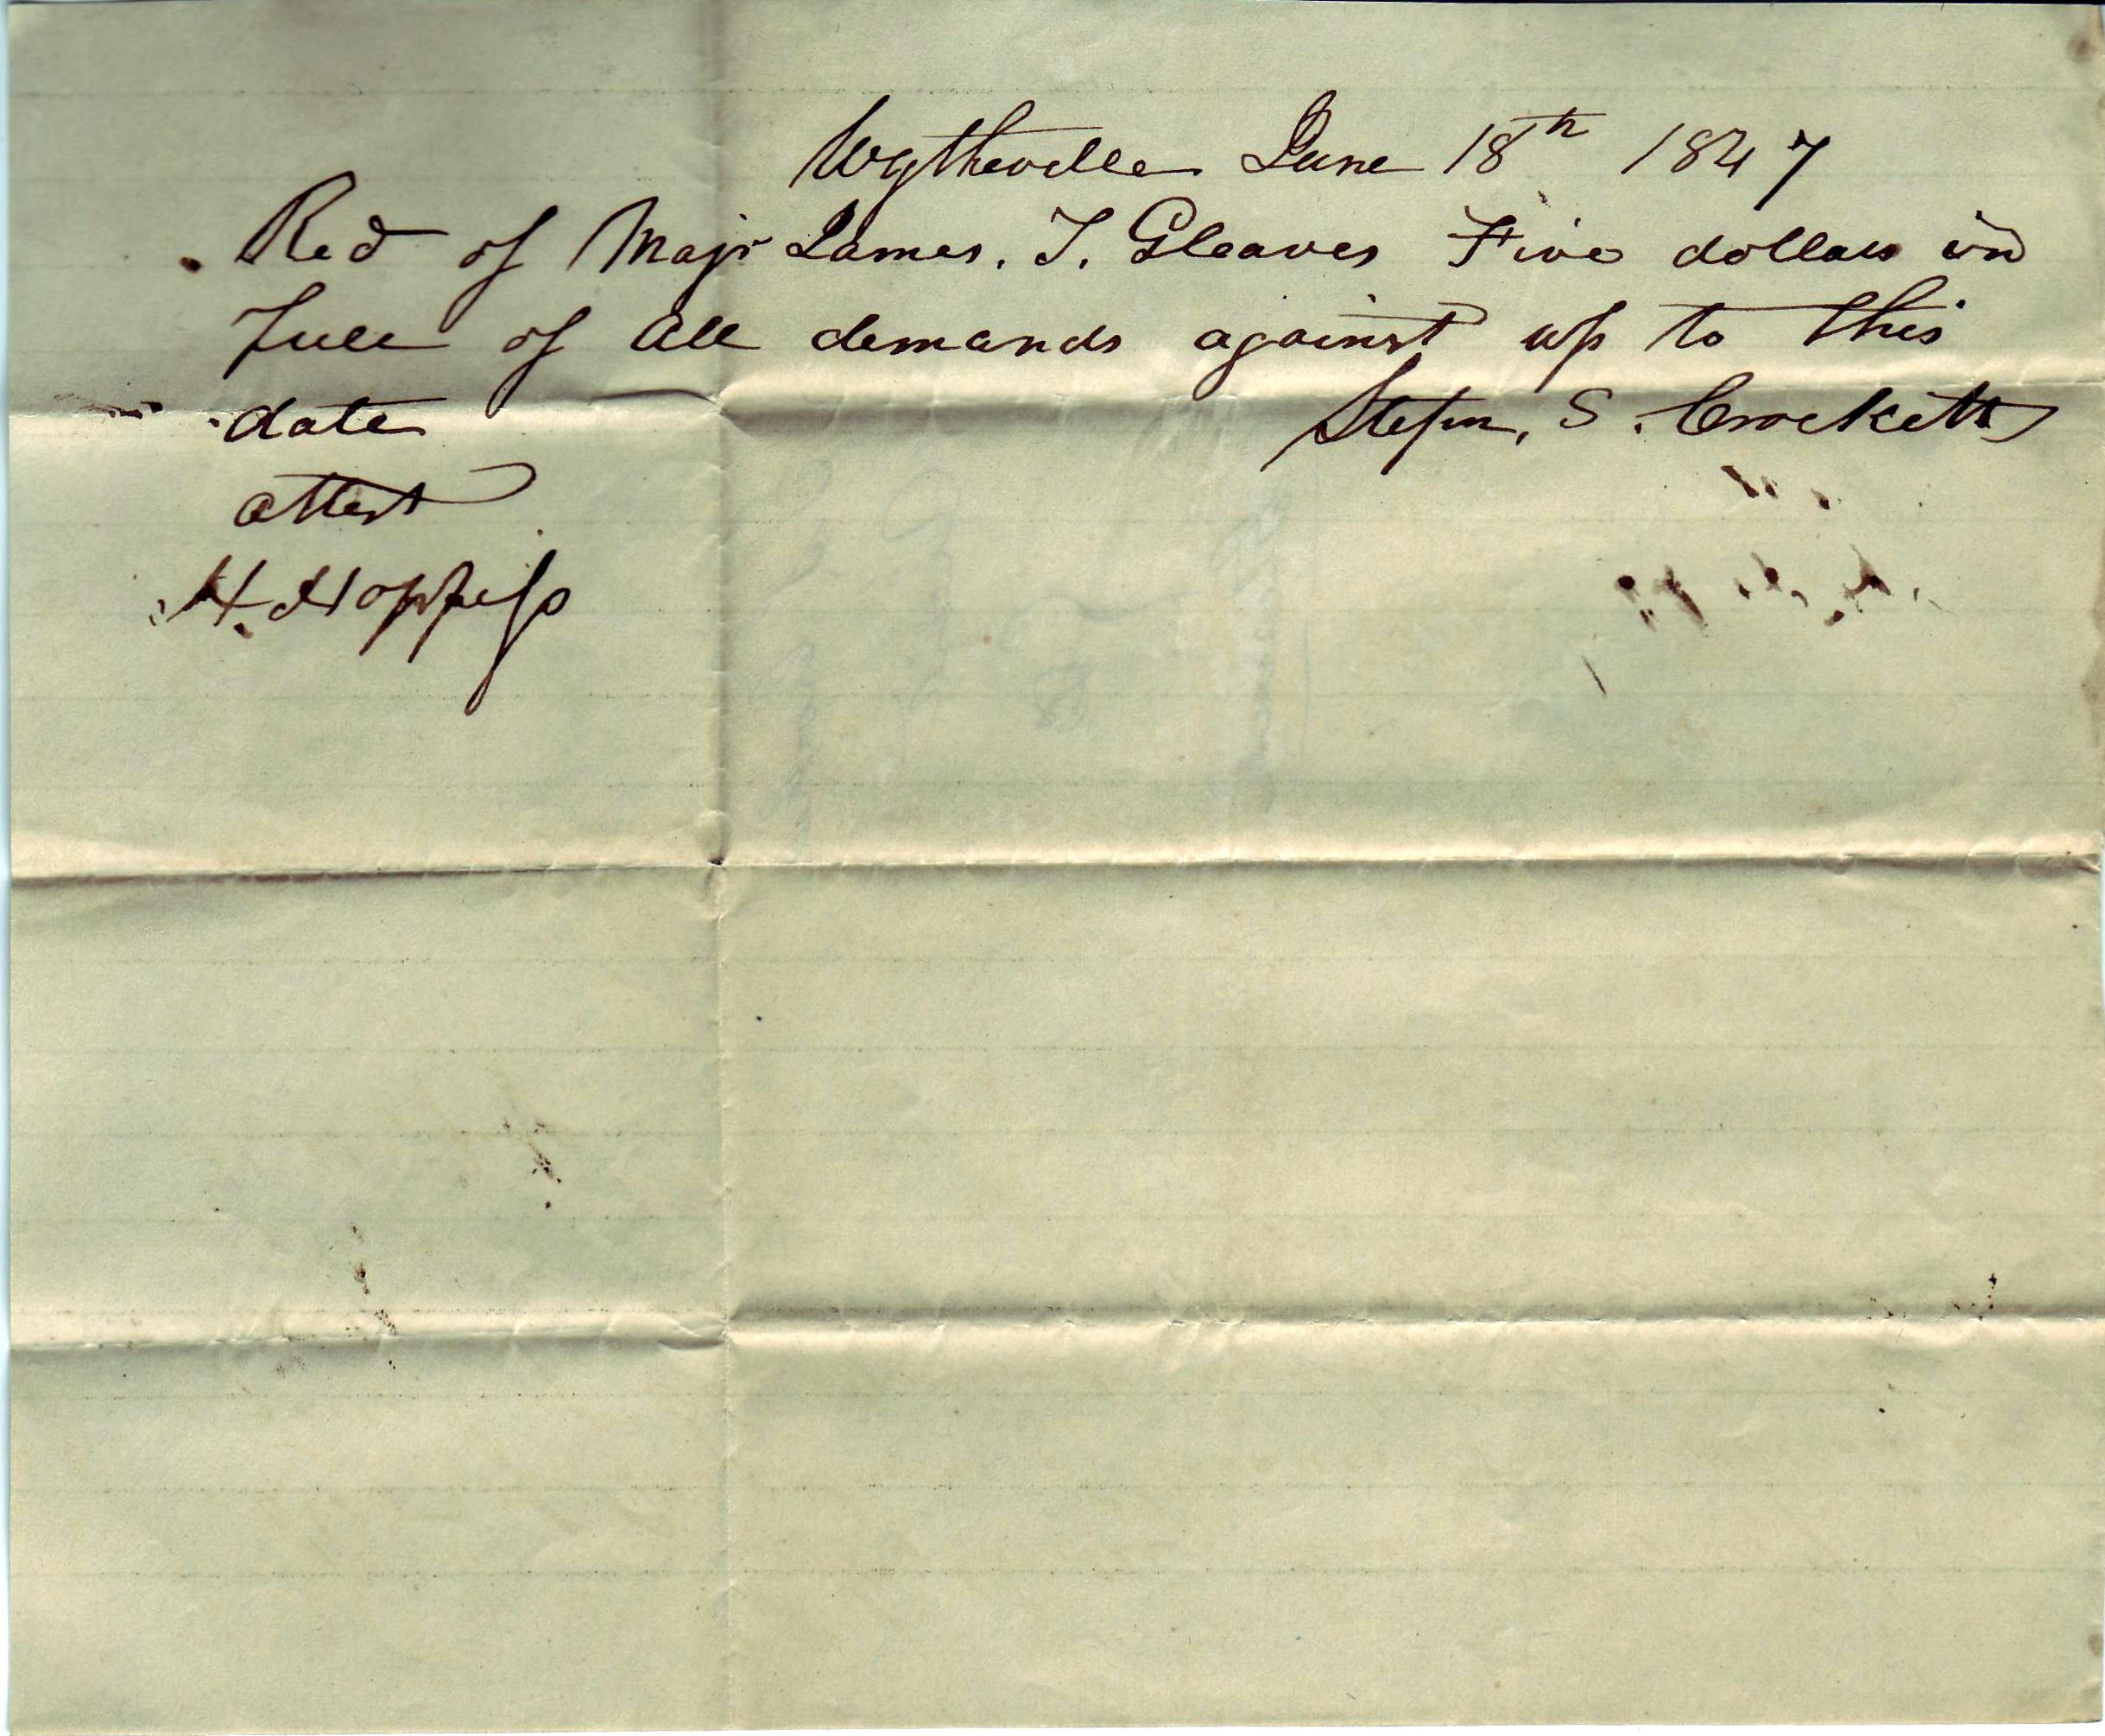 Wytheville June 18th 1847
Recd of Majr James. T. Gleaves Five dollars in
full of all demands against up to this
date Stepn. S. Crockett
attest
H. Hoppess